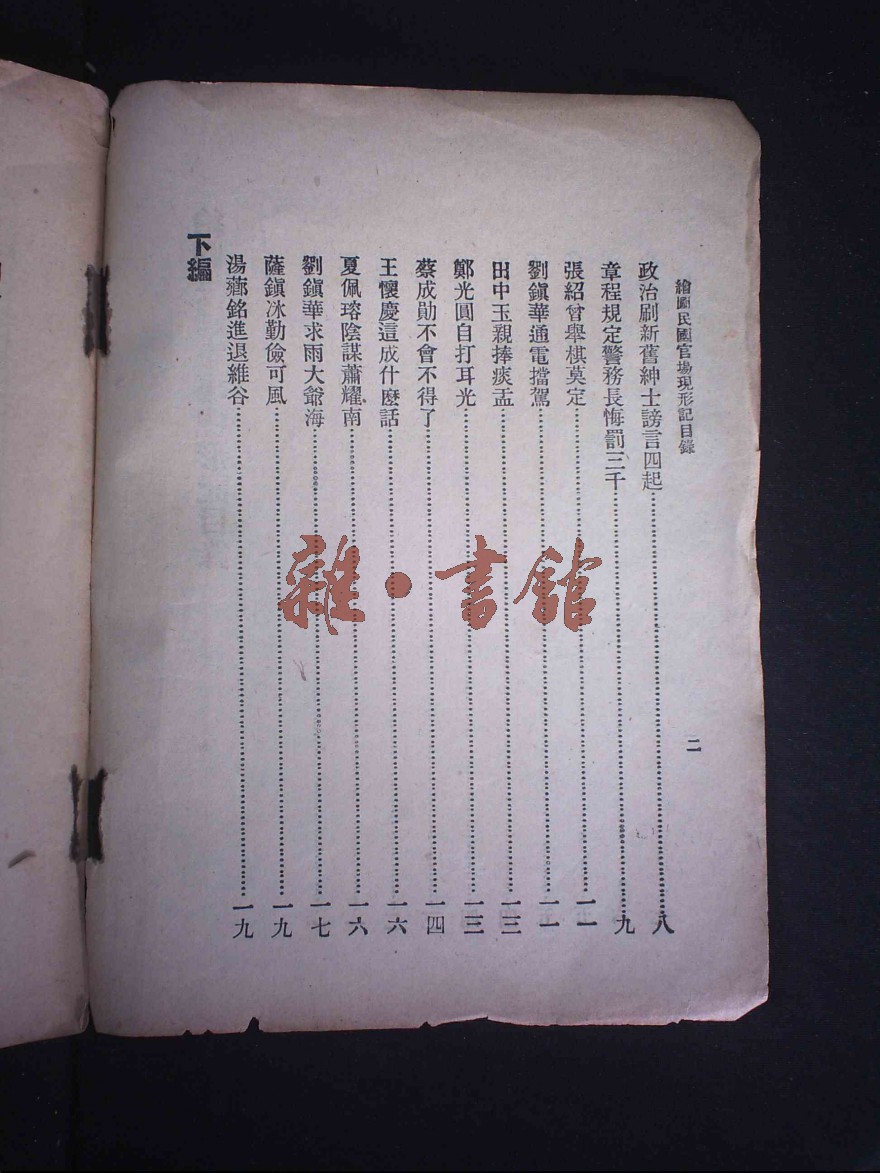 繪圖民國官場現形記目錄
二
政治刷新舊紳士謗言四起……八
章程規定警務長悔罰三千……九
張紹曾舉棋莫定……一一
劉鎮華通電擋駕……一一
田中玉親捧痰盂……一三
鄭光圓自打耳光……一三
蔡成勛不會不得了……一四
王懷慶這成什麼話……一六
夏佩瑢陰謀蕭耀南……一六
劉鎮華求雨大爺海……一七
薩鎮冰勤儉可風……一九
湯薌銘進退維谷……一九
下編
雜·書館